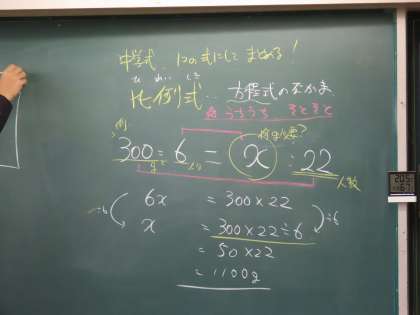 中学式、1つの式にしてまとめる!
ひれいしき
比例式…方程式のなかま
☆うちうち そとそと
例 何g必要?
300:6=x:22
gと 人分 人数
6x =300×22
÷6 x =300×22÷6 ÷6
=50×22
=1100g